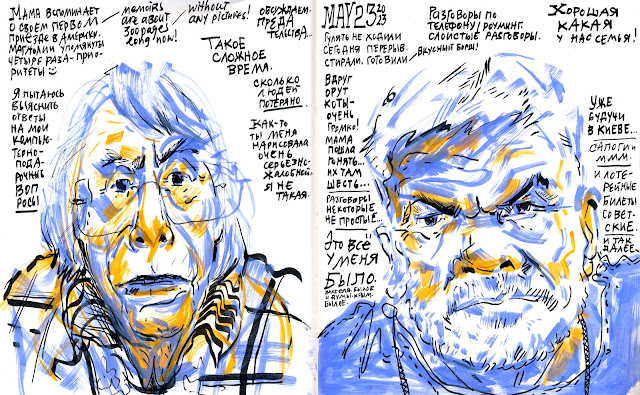 Мама вспоминает
о своем первом
приезде в Америку.
Магнолии упомянуты
четыре раза - прио-
ритеты
memoirs
are about
300 pages
long now!
without
any pictures!
Обсуждаем.
Преда
тельства..
Такое
сложное
время.
Сколько
людей
потеряно
Я пытаюсь
выяснить
ответы
на мои
компью-
терно-
пода-
рочные
воп
росы
Как-то
ты меня
нарисовала
очень
серьезно-
жалобной.
Я не
такая.
MAY 23 2023
Гулять не ходили
сегодня перерыв.
Стирали. Готовили
вкусный борщ!
Разговоры по
телефону/роуминг.
Слоистые разговоры.
Хорошая
какая
у нас семья!
Вдруг
орут
коты-
очень
громко!
Мама
пошла
гонять...
Их там
шесть...
Разговоры
некоторые
не простые...
Это всё
у меня
было.
былое.
Уже
будучи
в Киеве..
Сапоги и
МММ.
и лоте-
рейные
билеты
совет-
ские.
и так
далее..